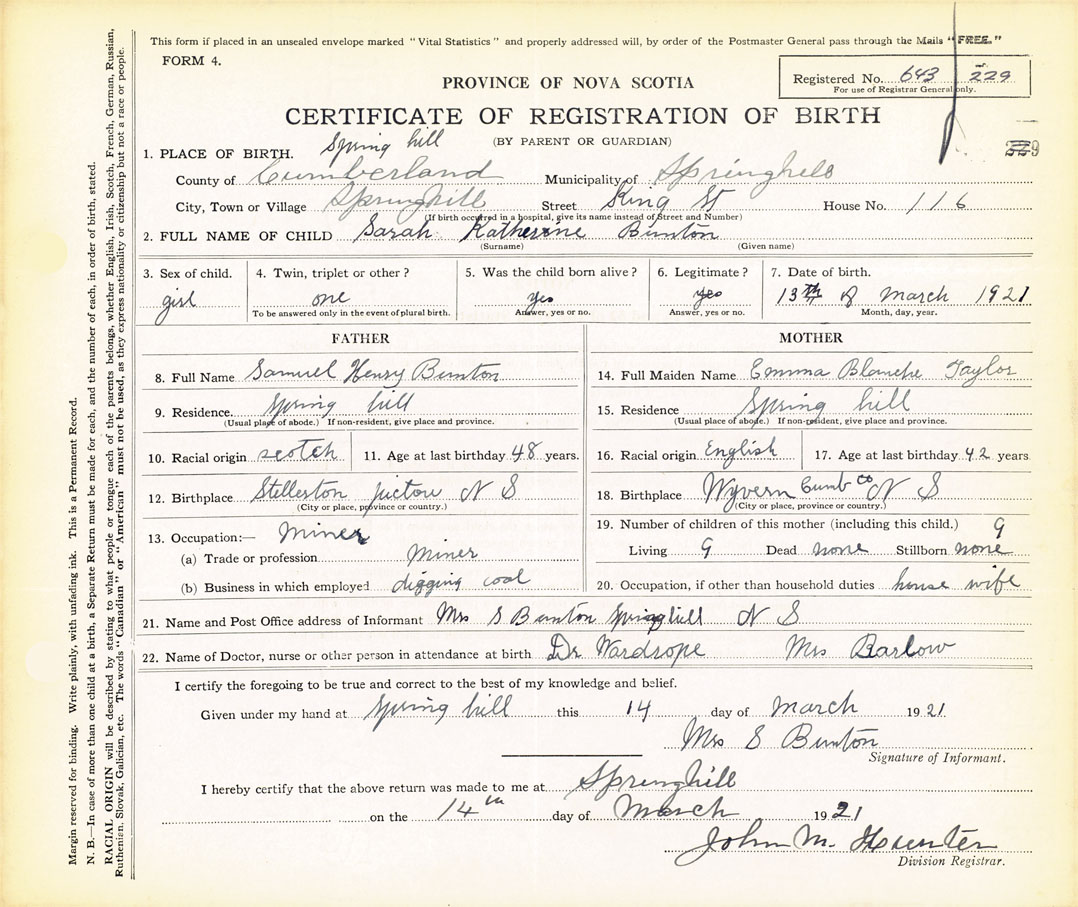 This form if placed in an unsealed envelope marked "Vital Statistics" and properly addressed will, by order of the Postmaster General pass through the Mails "FREE."
FORM 4.
Registered No. 643 229
For use of Registrar General only.
PROVINCE OF NOVA SCOTIA
CERTIFICATE OF REGISTRATION OF BIRTH
(BY PARENT OR GUARDIAN)
229
1. PLACE OF BIRTH. Spring hill
County of Cumberland Municipality of Springhill
City, Town or Village Springhill Street King St House No. 116
(If birth occurred in a hospital, give its name instead of Street and Number)
2. FULL NAME OF CHILD Sarah Katherine Bunton
(Surname) (Given name)
3. Sex of child. 4. Twin, triplet or other? 5. Was the child born alive? 6. Legitimate? 7. Date of birth.
girl one yes yes 13th of March 1921
To be answered only in the event of plural birth. Answer, yes or no. Answer, yes or no. Month, day, year.
FATHER MOTHER
8. Full Name Samuel Henry Bunton 14. Full Maiden Name Emma Blanche Taylor
9. Residence. Spring hill 15. Residence Spring hill
(Usual place of abode.) If non-resident, give place and province. (Usual place of abode.) If non-resident, give place and province.
10. Racial origin scotch 11. Age at last birthday 48 years. 16. Racial origin English 17. Age at last birthday 42 years
12. Birthplace Stellerton pictou N S 18. Birthplace Wyvern Cumb co N S
(City or place, province or country.) (City or place, province or country.)
13. Occupation:— Miner 19. Number of children of this mother (including this child.) 9
(a) Trade or profession Miner Living 9 Dead none Stillborn none
(b) Business in which employed digging coal 20. Occupation, if other than household duties house wife
21. Name and Post Office address of Informant Mrs S Bunton Springhill N S
22. Name of Doctor, nurse or other person in attendance at birth Dr Wardrope Mrs Barlow
I certify the foregoing to be true and correct to the best of my knowledge and belief.
Given under my hand at Spring hill this 14 day of March 1921
Mrs S Bunton
Signature of Informant.
I hereby certify that the above return was made to me at Springhill
on the 14th day of March 1921
John M. Hunter
Division Registrar.
Margin reserved for binding. Write plainly, with unfading ink. This is a Permanent Record.
N. B.—In case of more than one child at a birth, a Separate Return must be made for each, and the number of each, in order of birth, stated.
RACIAL ORIGIN will be described by stating to what people or tongue each of the parents belongs, whether English, Irish, Scotch, French, German, Russian,
Ruthenian, Slovak, Galician, etc. The words "Canadian" or "American" must not be used, as they express nationality or citizenship but not a race or people.